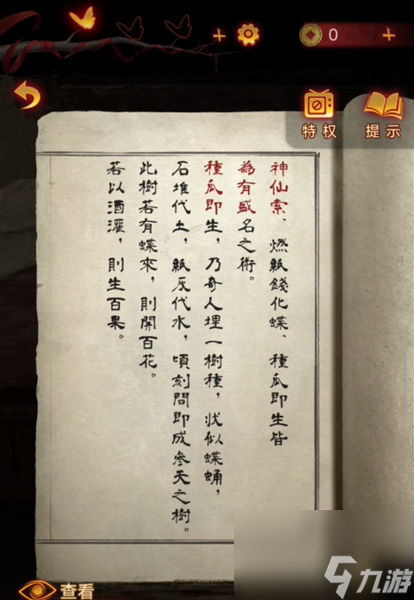 0
特权
提示
神仙索、燃紙錢化蝶、種瓜即生皆
為有盛名之術。
種瓜即生，乃奇人埋一樹種，狀似蝶蛹，
石堆代土，紙灰代水，頃刻間即成參天之樹。
此樹若有蝶來，則開百花。
若以酒灌，則生百果。
查看
九游